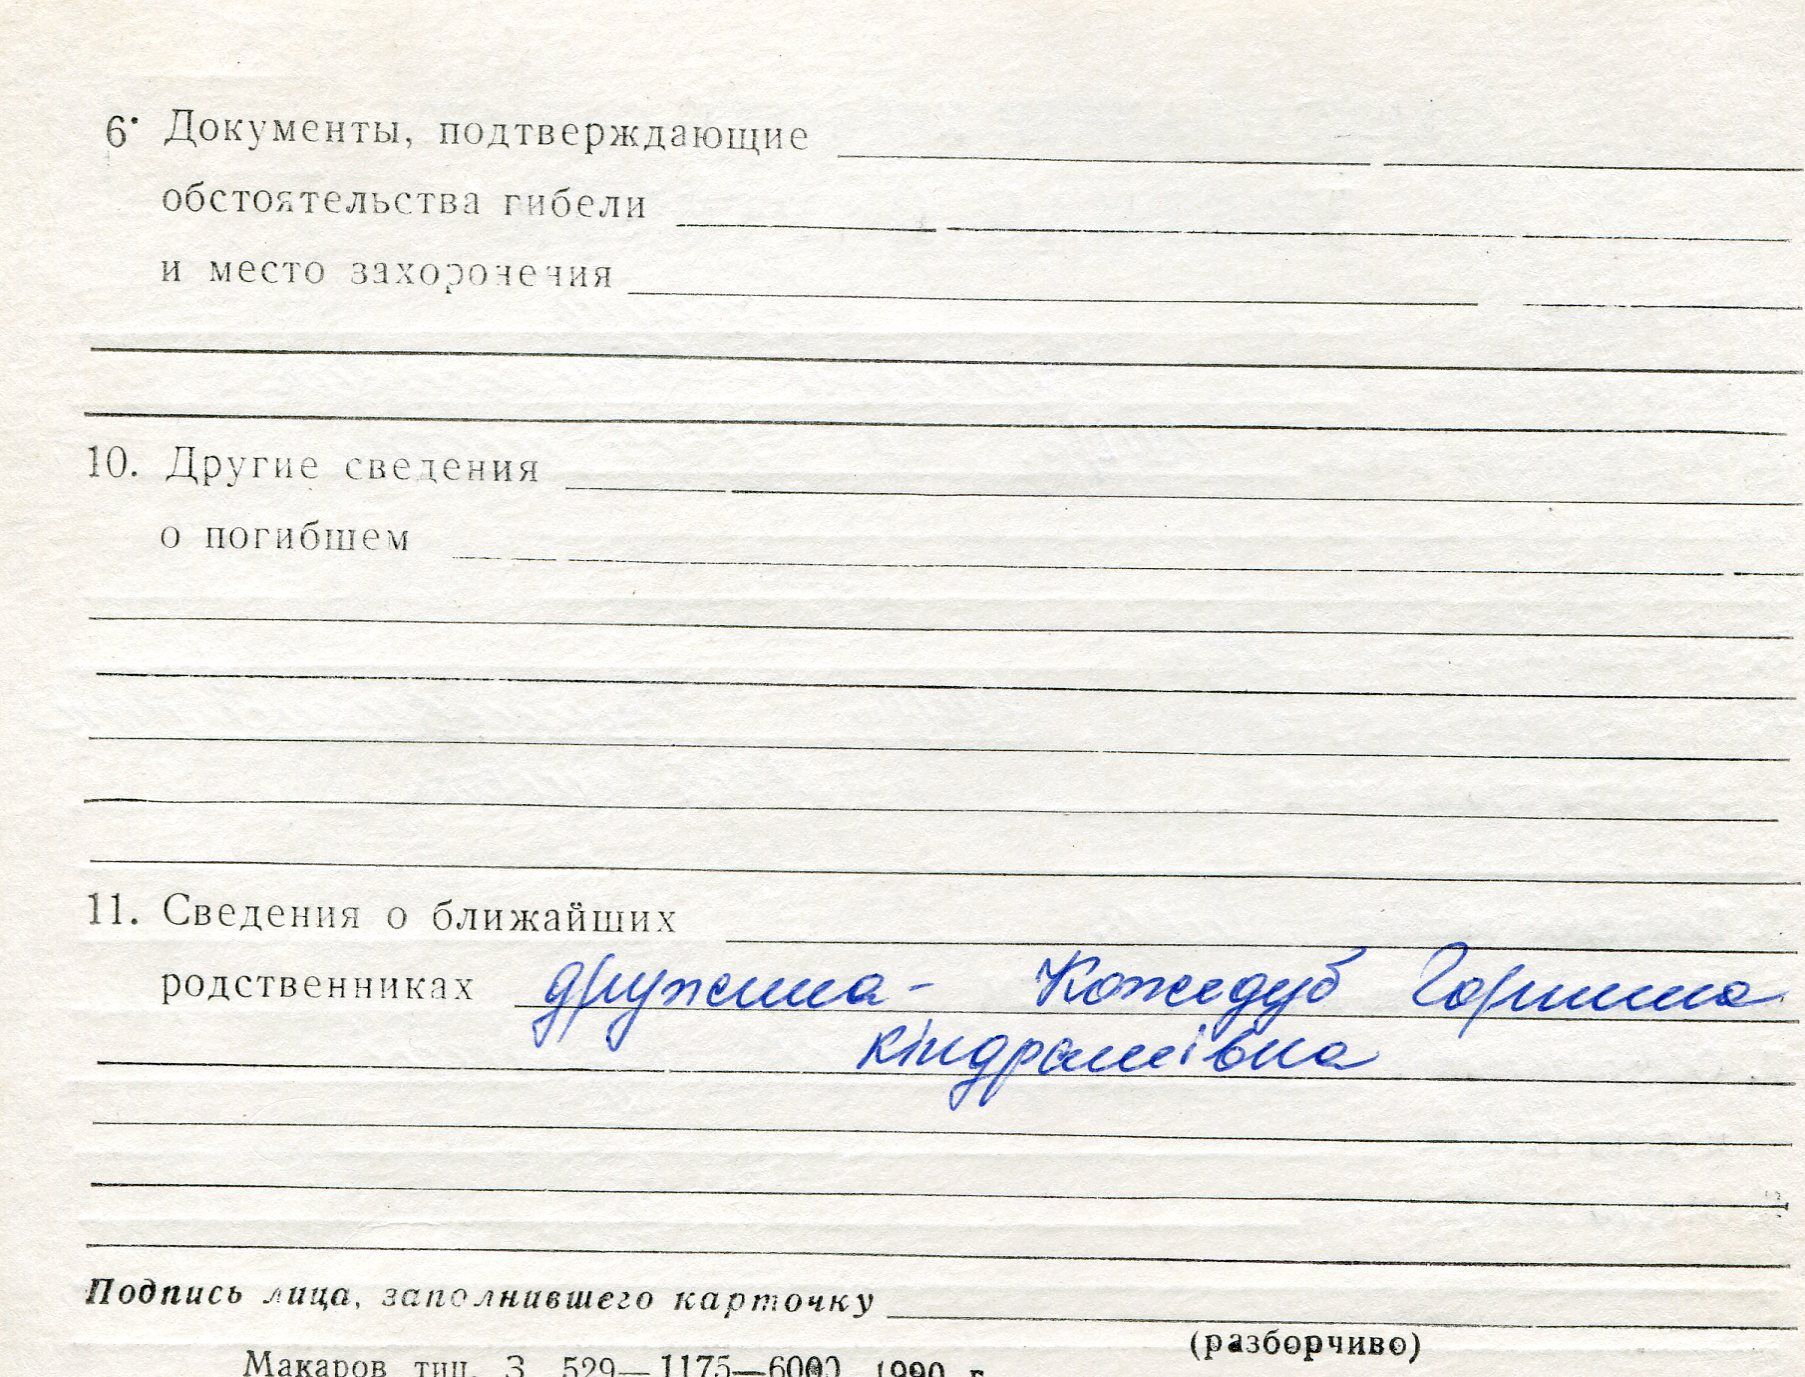 6. Документы, подтверждающие
обстоятельства гибели
и место захоронения
10. Другие сведения
о погибшем
11. Сведения о ближайших
родственниках дружина - Кожедуб Горпина
Кіндратівна
Подпись лица, заполнившего карточку
(разборчиво)
Макаров тип. З. 529—1175—6000 1990 г.